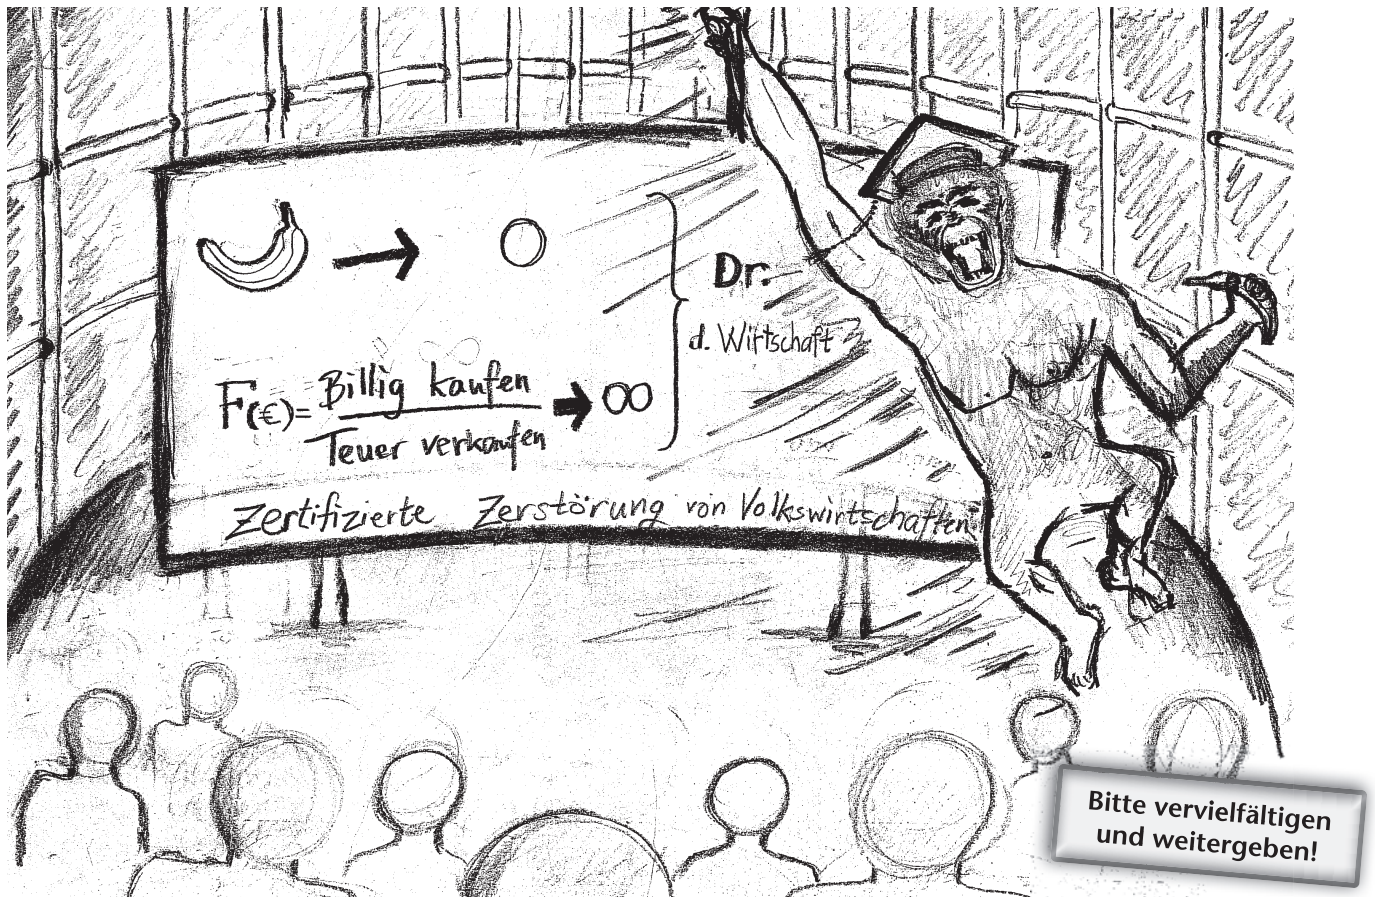 Dr.
d. Wirtschaft
F(€)= Billig kaufen
Teuer verkaufen
Zertifizierte Zerstörung von Volkswirtschaften
Bitte vervielfältigen
und weitergeben!